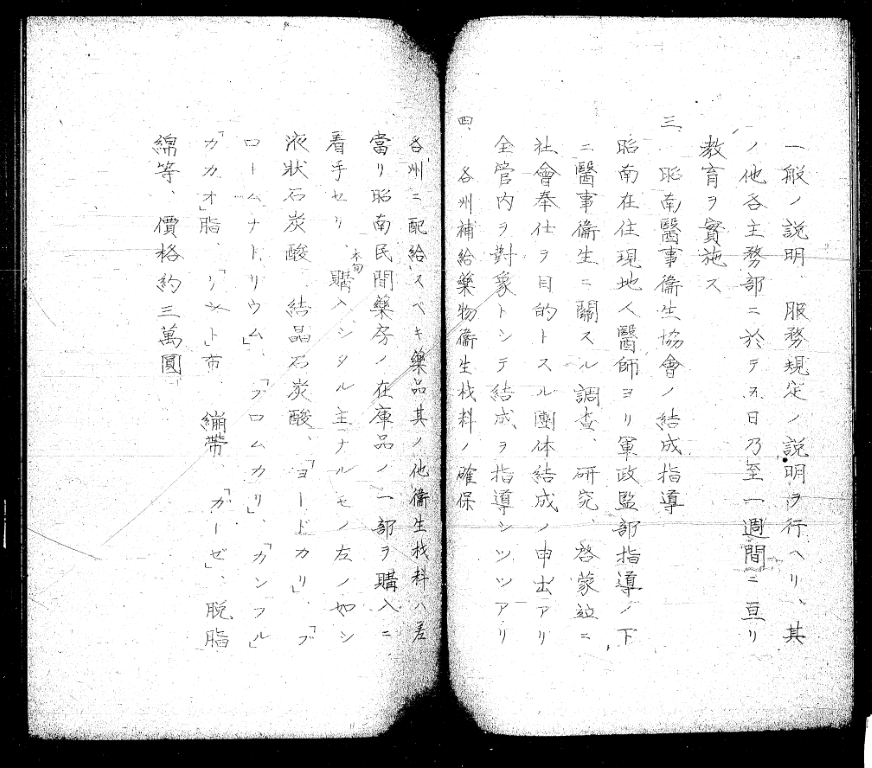 一般ノ説明、服務規定ノ説明ヲ行ヘリ、其
ノ他各主務部ニ於テ五日乃至一週間ニ亘リ
教育ヲ實施ス
三、昭南醫事衞生協會ノ結成指導
昭南在住現地人醫師ヨリ軍政監部指導ノ下
ニ醫事衞生ニ關スル調査、研究、啓蒙並ニ
社會奉仕ヲ目的トスル團体結成ノ申出アリ
全管内ヲ對象トシテ結成ヲ指導シツツアリ
四、各州補給藥物衞生材料ノ確保
各州ニ配給スベキ藥品其ノ他衞生材料ハ差
當リ昭南民間藥房ノ在庫品ノ一部ヲ購入ニ
着手セリ、本旬購入シタル主ナルモノ左ノ如シ
液狀石炭酸、結晶石炭酸、「ヨードカリ」、「ブ
ロームナトリウム」、「ブロムカリ」、「カンフル」
「カカオ」脂、「リント」布、繃帶、「ガーゼ」、脱脂
綿等、價格約三萬圓